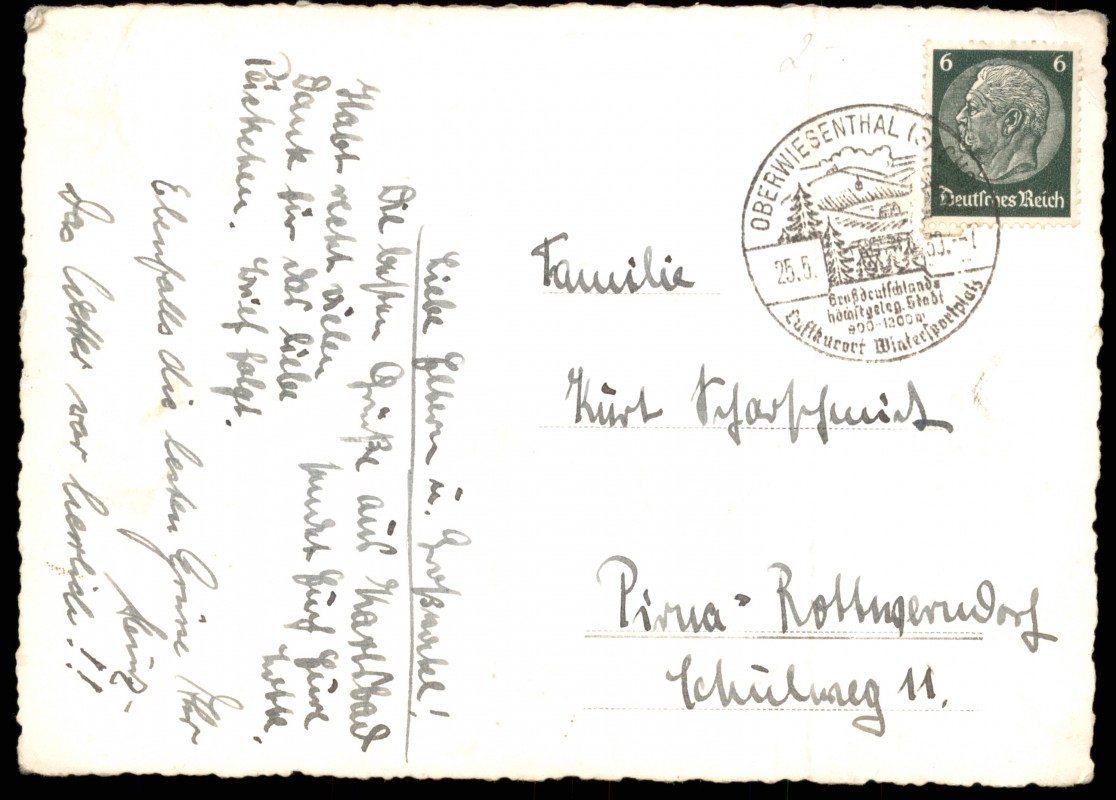 Liebe Eltern u. Großmutel!
Die besten Grüße aus Karlsbad
sendet Euch Eure
Lotte.
Habt recht vielen
Dank für das liebe
Päckchen. Brief folgt.
Ebenfalls die besten Grüsse Ihr
Heinz.
Das Wetter war herrlich!!
6 6
Deutsches Reich
OBERWIESENTHAL
25.5.
Großdeutschlands
höchstgeleg. Stadt
900-1200 m
Luftkurort Wintersportplatz
Familie
Kurt Scharschmidt
Pirna-Rottwerndorf
Schulweg 11.